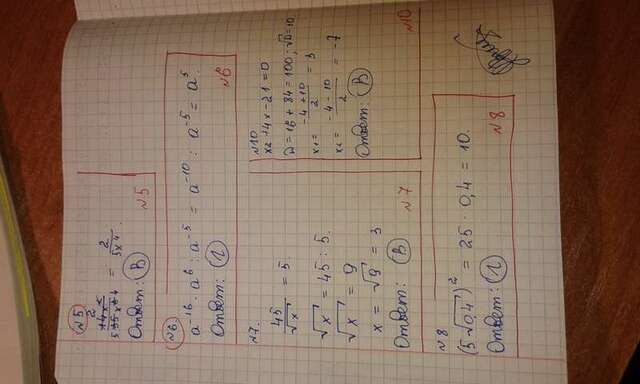 №5
2
14x² / 5 35 x⁶ 4 = 2 / 5x⁴
Ответ: В
№5
№6.
a⁻¹⁶ · a⁶ : a⁻⁵ = a⁻¹⁰ : a⁻⁵ = a⁵.
Ответ: Л
№6
№7.
45 / √x = 5.
√x = 45 : 5.
√x = 9
x = √9 = 3
Ответ: В
№7
№10
x2 + 4x - 21 = 0
D = 16 + 84 = 100; √D = 10
x1 = -4 + 10 / 2 = 3
x2 = -4 - 10 / 2 = -7
Ответ: В
№10
№8
(5√0,4)² = 25 · 0,4 = 10.
Ответ: Л
№8